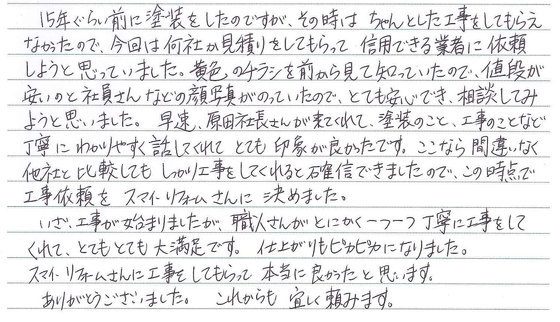 15年ぐらい前に塗装をしたのですが、その時は ちゃんとした工事をしてもらえ
なかったので、今回は何社か見積りをしてもらって 信用できる業者に依頼
しようと思っていました。黄色のチラシを前から見て知っていたので、値段が
安いのと社員さんなどの顔写真がのっていたので、とても安心でき、相談してみ
ようと思いました。 早速、原田社長さんが来てくれて、塗装のこと、工事のことなど
丁寧に わかりやすく話してくれて とても 印象が良かったです。ここなら間違いなく
他社と 比較しても しっかり工事をしてくれると確信できましたので、この時点で
工事依頼を スマイリフォームさんに 決めました。
いざ、工事が始まりましたが、職人さんがとにかく一つ一つ丁寧に工事をして
くれて、とてもとても 大満足です。 仕上がりもピカピカになりました。
スマイリフォームさんに工事をしてもらって 本当に良かったと思います。
ありがとうございました。 これからも 宜しく頼みます。